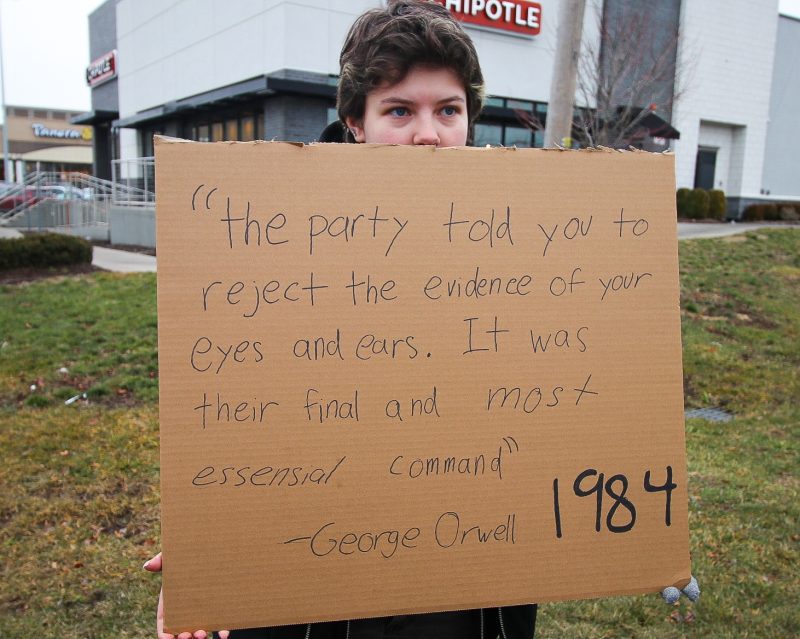 CHIPOTLE
"the party told you to
reject the evidence of your
eyes and ears. It was
their final and most
essensial command"
-George Orwell
1984